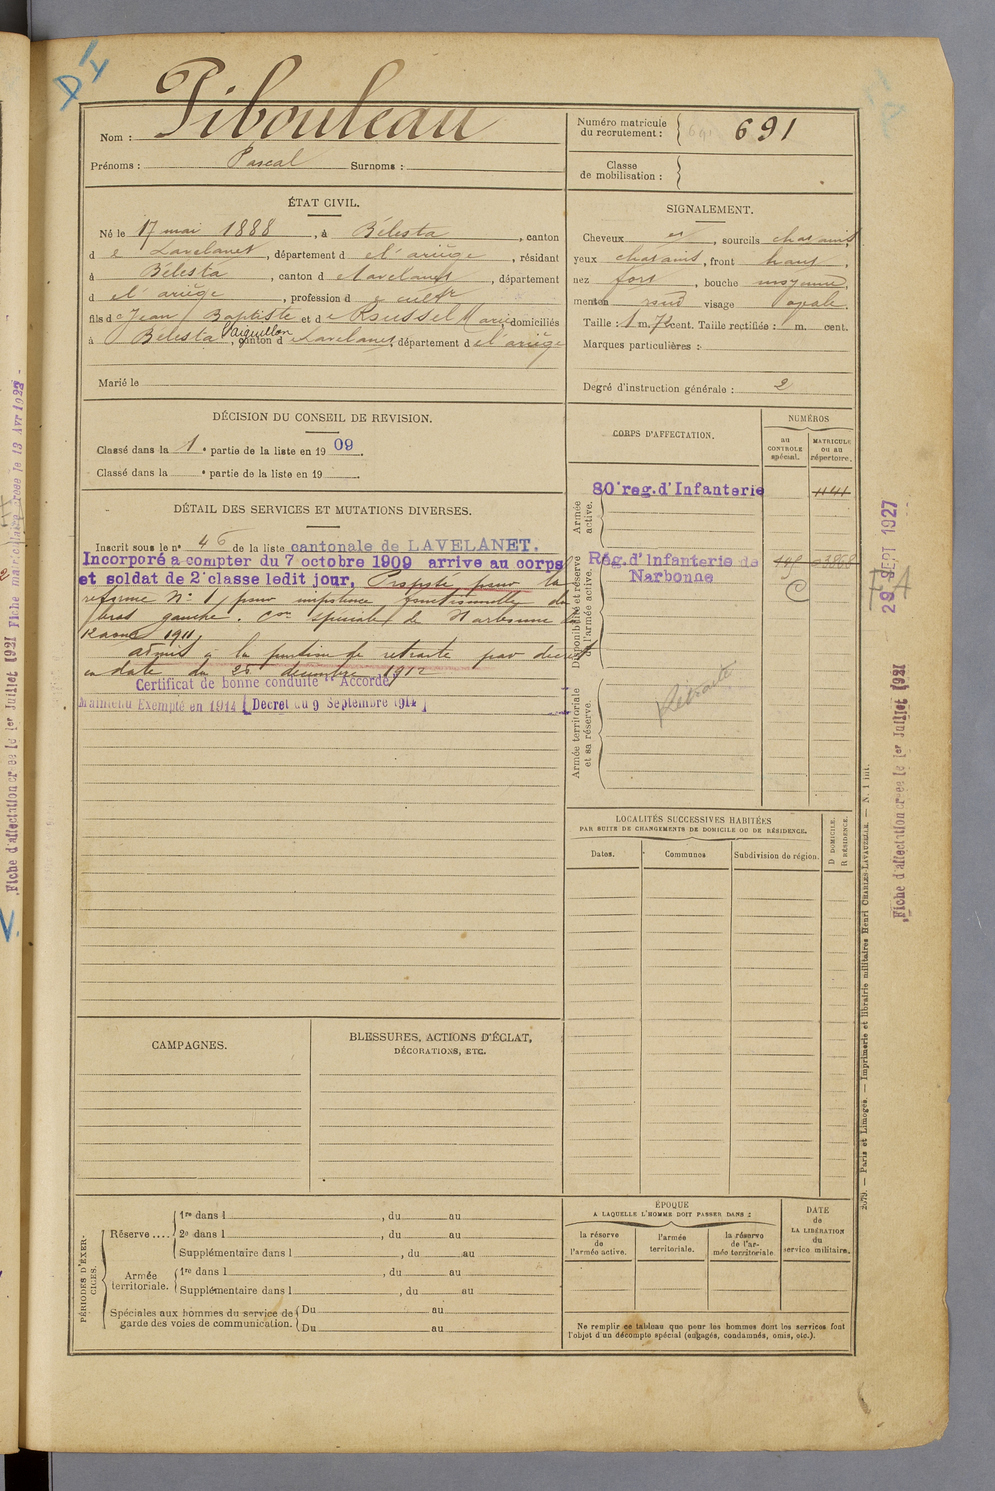 Nom : Pibouleau
Prénoms : Pascal Surnoms :
Numéro matricule du recrutement : 691
Classe de mobilisation :
ÉTAT CIVIL.
Né le 17 mai 1888, à Bélesta, canton
d e Lavelanet, département d e l'ariège, résidant
à Bélesta, canton d e Lavelanet, département
d e l'ariège, profession d e cultr
fils de Jean Baptiste et de Roussel Marie domiciliés
à Bélesta l'aiguillon, canton d e Lavelanet, département d e l'ariège
Marié le
SIGNALEMENT.
Cheveux et, sourcils chatains,
yeux chatains, front haut,
nez fort, bouche moyenne,
menton rond visage ovale.
Taille : 1 m. 72 cent. Taille rectifiée : m. cent.
Marques particulières :
Degré d'instruction générale : 2
DÉCISION DU CONSEIL DE REVISION.
Classé dans la 1e partie de la liste en 1909.
Classé dans la e partie de la liste en 19 .
DÉTAIL DES SERVICES ET MUTATIONS DIVERSES.
Inscrit sous le n° 46 de la liste cantonale de LAVELANET.
Incorporé à compter du 7 octobre 1909 arrive au corps
et soldat de 2e classe ledit jour. Proposé pour la
reforme N° 1 pour impotence fonctionnelle du
bras gauche. Con Spéciale de Narbonne du
12 aout 1911.
admis à la pension de retraite par decret
en date du 25 decembre 1912
Certificat de bonne conduite "Accordé"
Maintenu Exempté en 1914 [Decret du 9 Septembre 1914]
CORPS D'AFFECTATION.
NUMÉROS
au CONTROLE spécial.
MATRICULE ou au répertoire.
Armée active.
80e reg. d'Infanterie 1141
Disponibilité et réserve de l'armée active.
Rég. d'Infanterie de
Narbonne
C
Armée territoriale et sa réserve.
Retraité
LOCALITÉS SUCCESSIVES HABITÉES
PAR SUITE DE CHANGEMENTS DE DOMICILE OU DE RÉSIDENCE.
Dates.
Communes
Subdivision de région.
D DOMICILE.
R RÉSIDENCE.
CAMPAGNES.
BLESSURES, ACTIONS D'ÉCLAT,
DÉCORATIONS, ETC.
PÉRIODES D'EXERCICES.
Réserve ....
1re dans l , du au
2e dans l , du au
Supplémentaire dans l , du au
Armée territoriale.
1re dans l , du au
Supplémentaire dans l , du au
Spéciales aux hommes du service de garde des voies de communication.
Du au
Du au
ÉPOQUE
A LAQUELLE L'HOMME DOIT PASSER DANS :
la réserve de l'armée active.
l'armée territoriale.
la réserve de l'armée territoriale.
DATE de LA LIBÉRATION du service militaire.
Ne remplir ce tableau que pour les hommes dont les services font
l'objet d'un décompte spécial (engagés, condamnés, omis, etc.).
2079. — Paris et Limoges. — Imprimerie et librairie militaires Henri CHARLES-LAVAUZELLE. — N. 1 int.
29 SEPT 1927
Fiche d'affectation créée le 1er Juillet 1921
Fiche d'affectation créée le 1er Juillet 1921